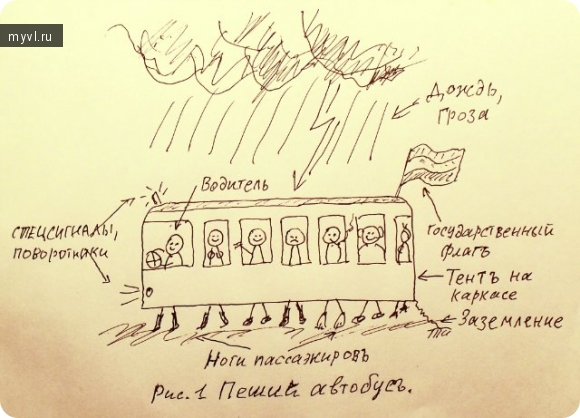 myvl.ru
Дождь,
гроза
Водитель
спецсигналы,
поворотники
государственный
флагъ
Тентъ на
каркасе
Заземление
Ноги пассажировъ
Рис. 1 Пеший автобусъ.